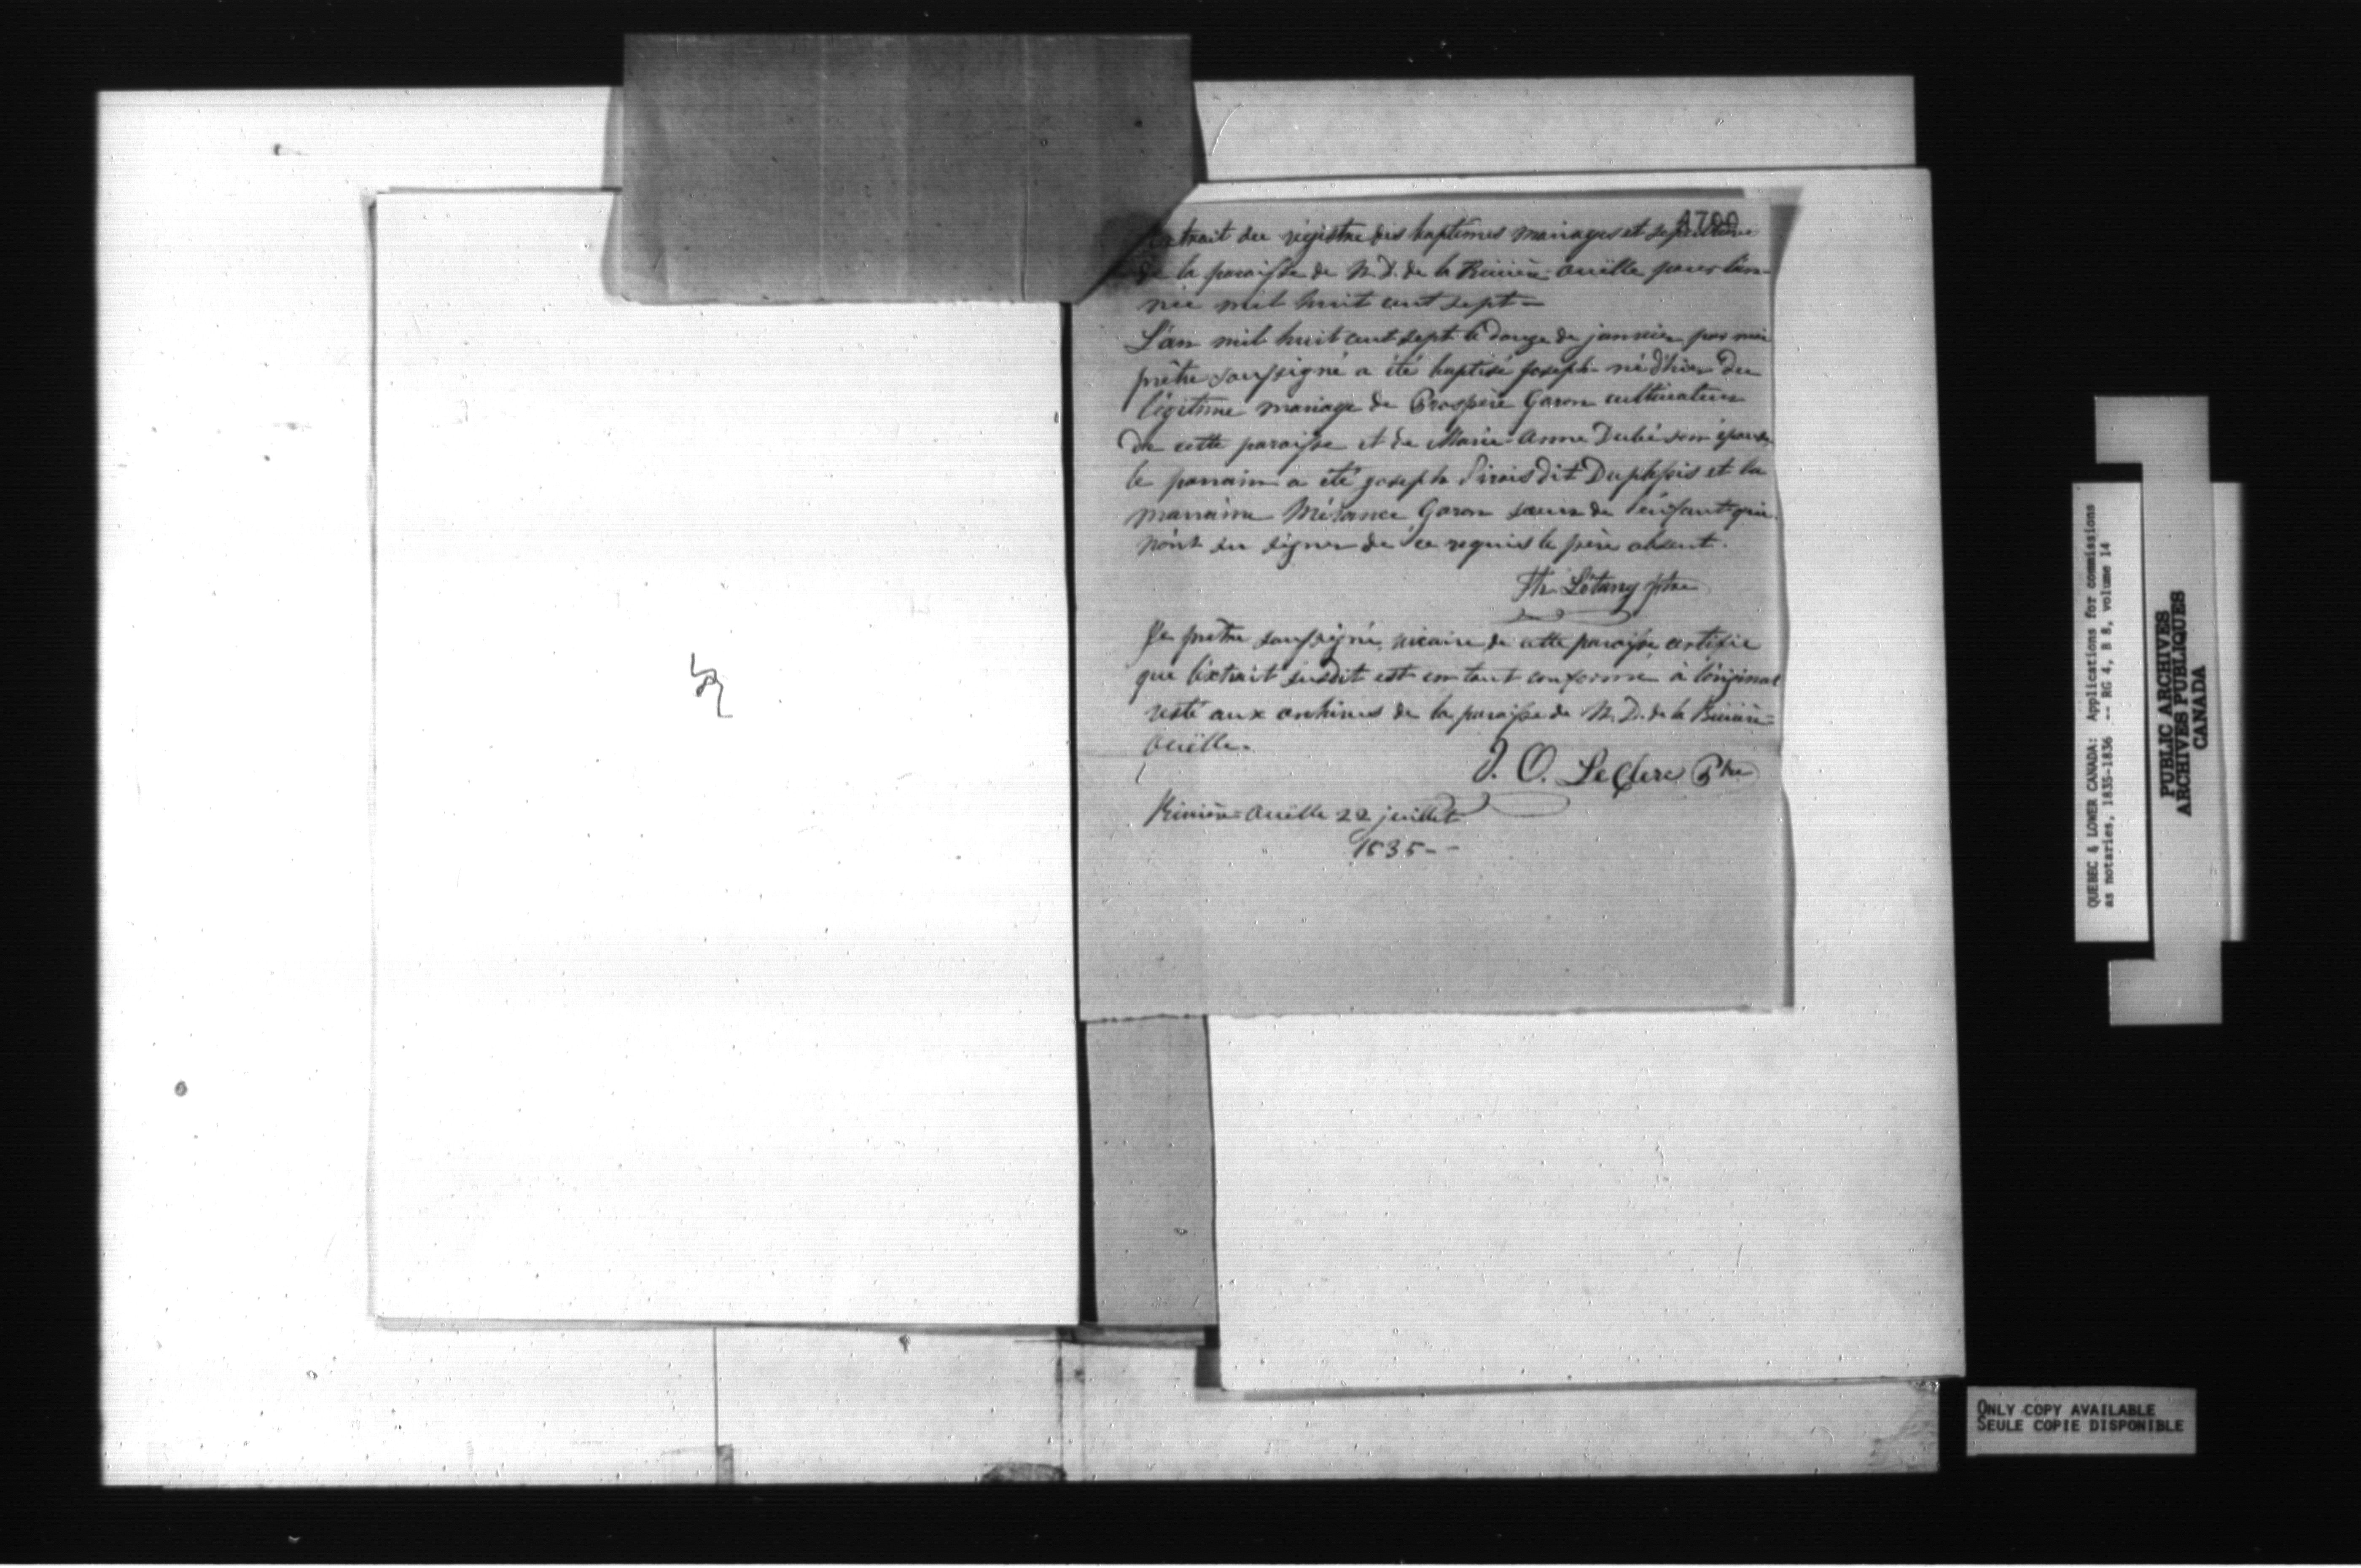 4700
Extrait du régistre des baptêmes mariages et sépultures
de la paroisse de N. D. de la Rivière-Ouëlle pour l'an-
née mil huit cent sept =
L'an mil huit cent sept le douze de janvier par moi
prêtre soussigné a été baptisé joseph né d'hier du
légitime mariage de Prospère Garon cultivateur
de cette paroisse et de Marie-Anne Dubé son épouse
le parrain a été joseph Sirois dit Duplessis et la
marraine Garon soeur de l'enfant qui
n'ont su signer de ce requis le père absent.
Ptre
Je prêtre soussigné, vicaire de cette paroisse certifie
que l'extrait susdit est en tout conforme à l'original
resté aux archives de la paroisse de N. D. de la Rivière=
Ouëlle.
J. O. LeClerc Ptre
Rivière=Ouëlle 22 juillet
1835--
QUEBEC & LOWER CANADA: Applications for commissions
as notaries, 1835-1836 -- RG 4, B 8, volume 14
PUBLIC ARCHIVES
ARCHIVES PUBLIQUES
CANADA
ONLY COPY AVAILABLE
SEULE COPIE DISPONIBLE